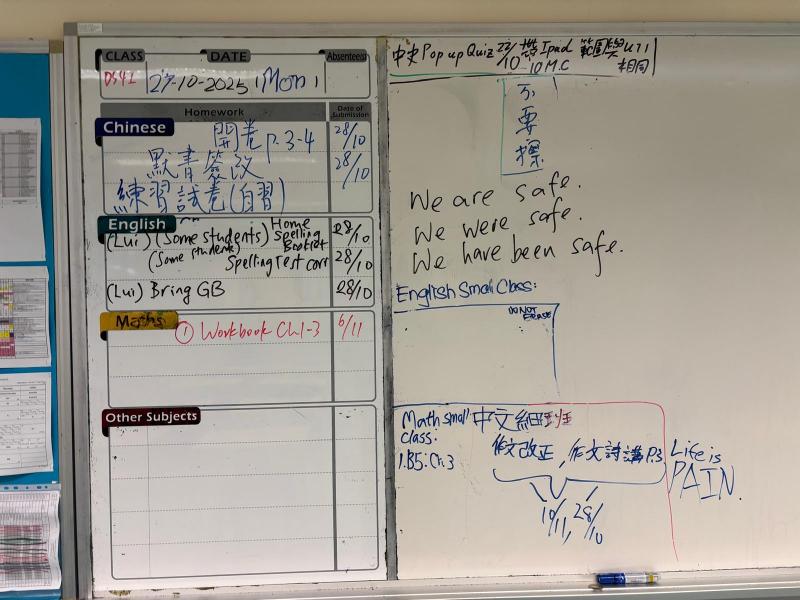 CLASS DATE Absentee(s)
DS41 27-10-2025 (Mon)
Homework Date of Submission
Chinese 開卷 p.3-4 28/10
默書簽改 28/10
練習試卷(自習)
English
(Lui) (Some students) Home Spelling Booklet 28/10
(Some students) Spelling Test corr 28/10
(Lui) Bring GB 28/10
Maths ① Workbook Ch1-3 6/11
Other Subjects
中史 Pop up Quiz 22/10 Ipad 範圍 UT1
10 M.C 相同
不
要
擦
We are safe.
We were safe.
We have been safe.
English Small Class:
DO NOT ERASE
Math small class: 中文細
1.B5: Ch.3
作文改正, 作文討講 P.3
10/11, 28/10
Life is
PAIN.